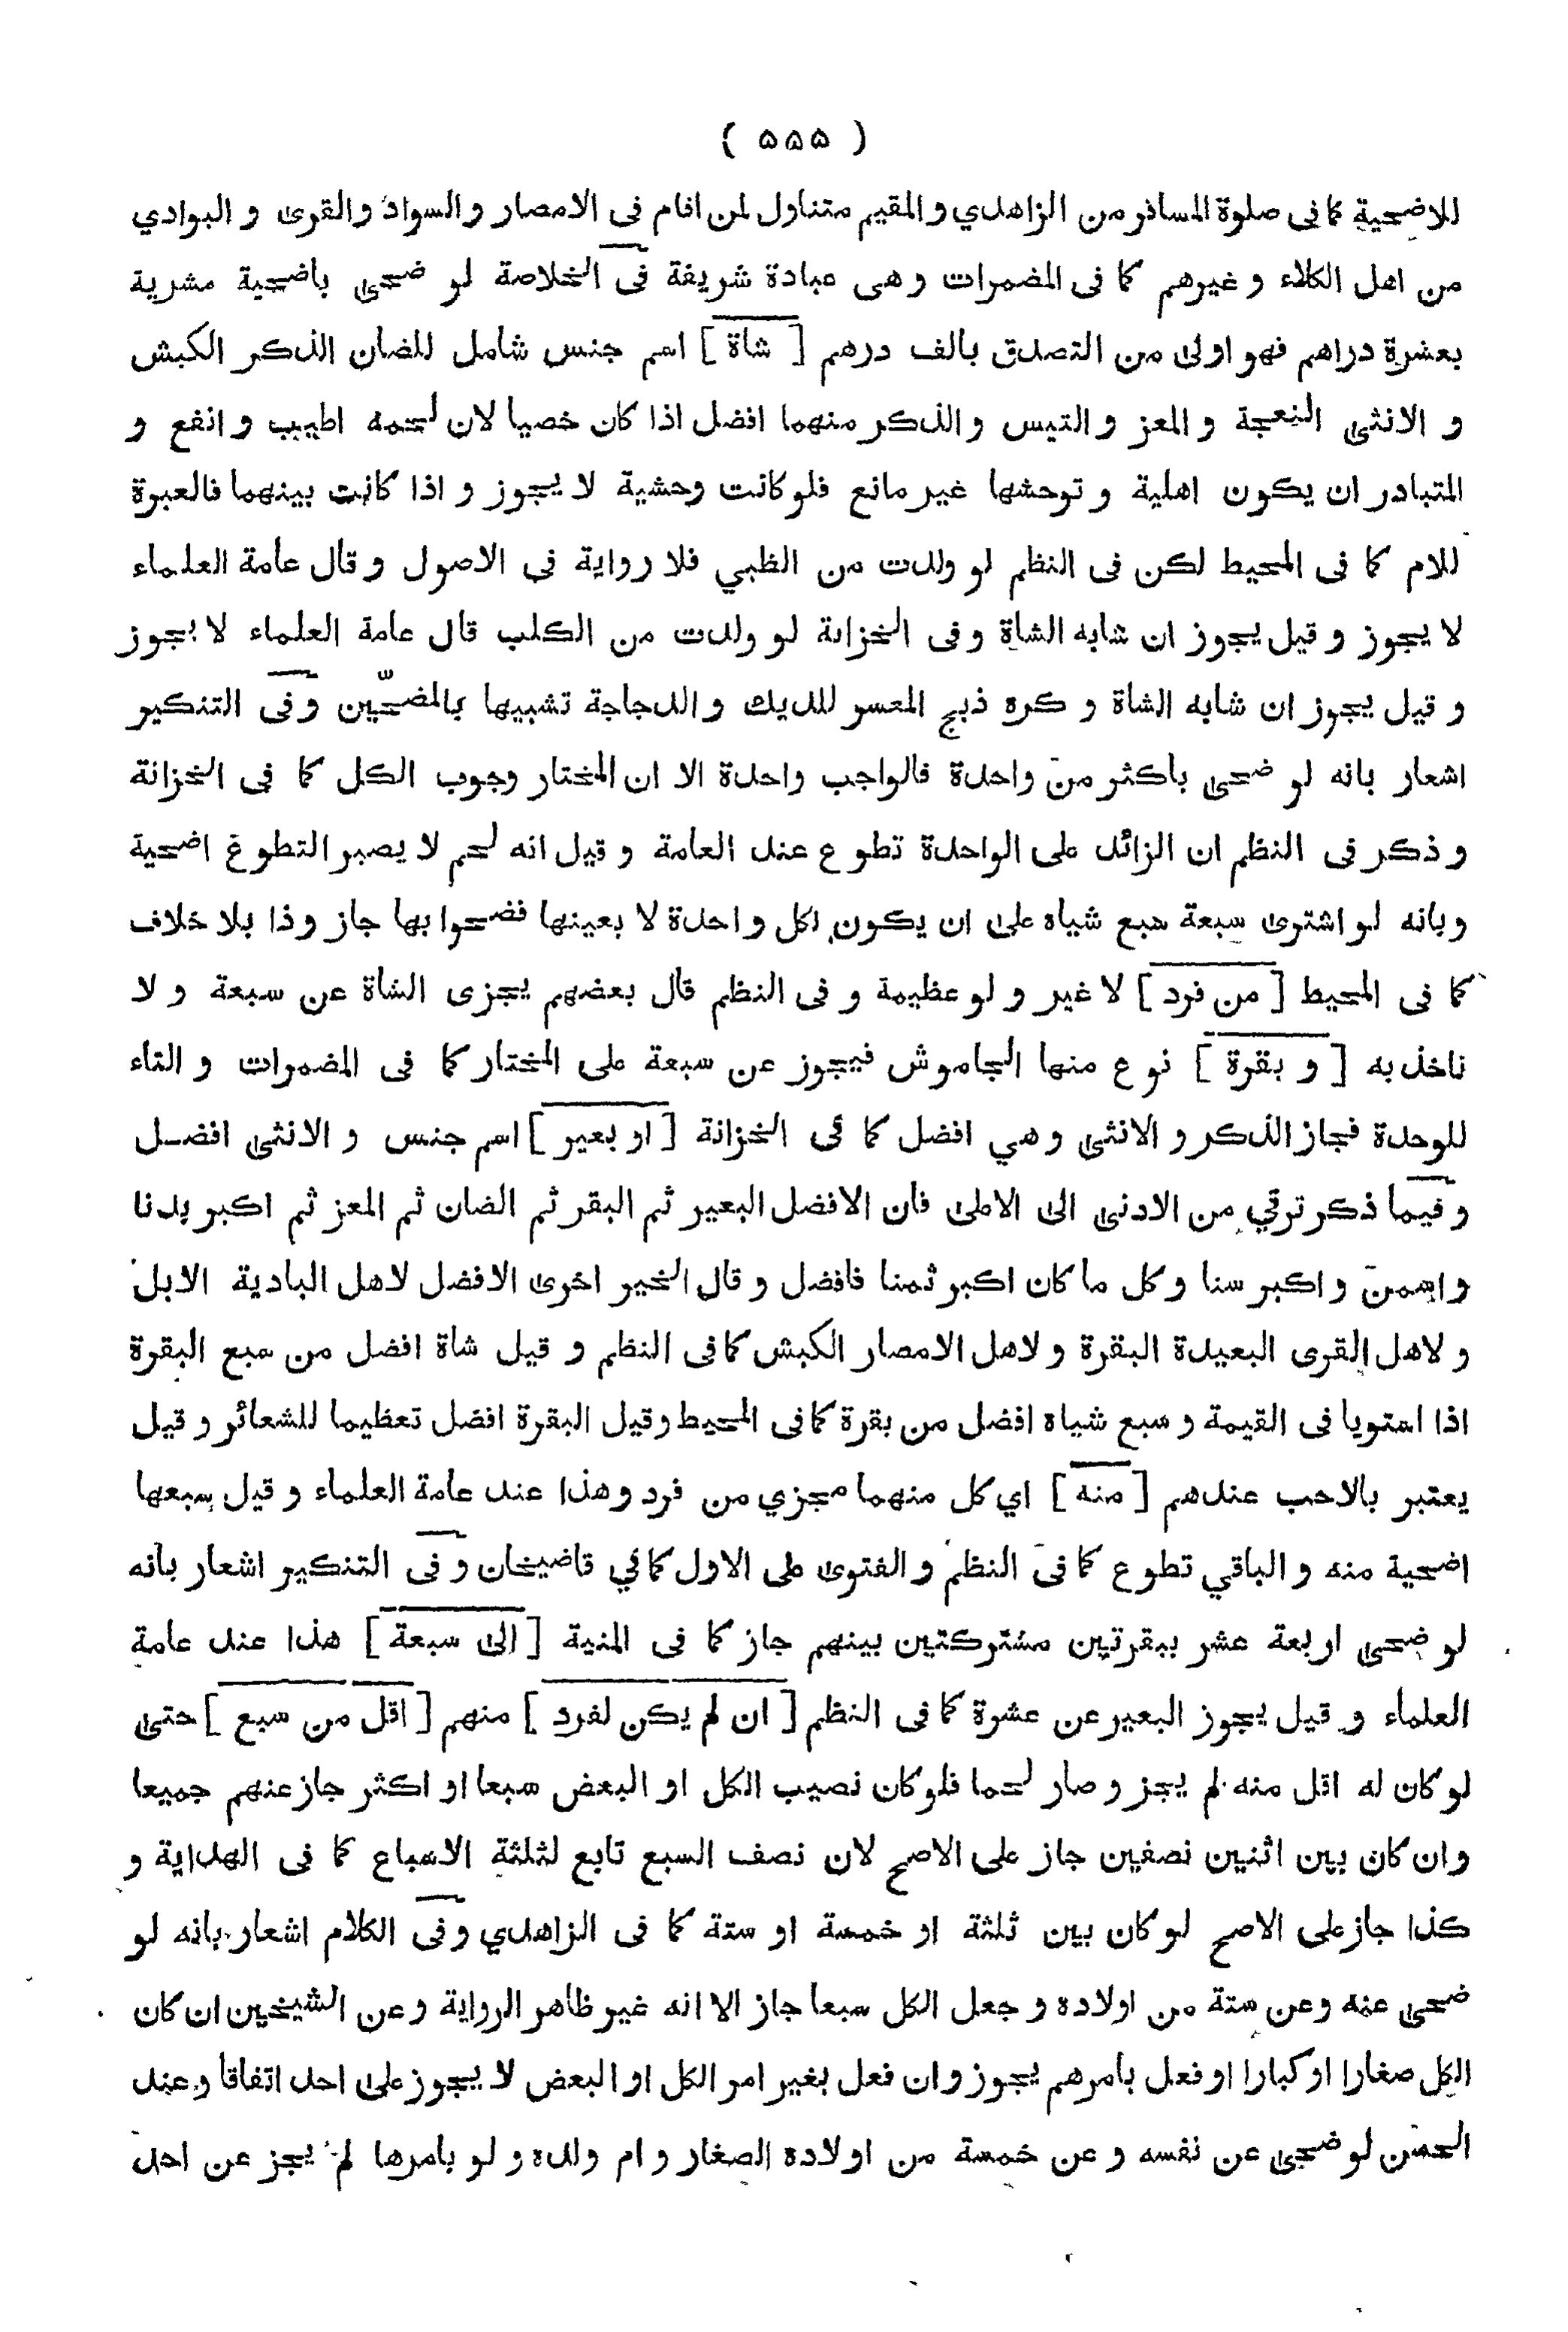 ( ۵۵۵ )
للاضحية كما فى صلوة المسافر من الزاهدي و المقيم متناول لمن اقام فى الامصار و السواد و القرى و البوادي
من اهل الكلاء و غيرهم كما فى المضمرات و هى عبادة شريفة فى الخلاصة لو ضحى باضحية مشرية
بعشرة دراهم فهو اولى من التصدق بالف درهم [ شاة ] اسم جنس شامل للضان الذكر الكبش
و الانثى النعجة و المعز و التيس و الذكر منهما افضل اذا كان خصيا لان لحمه اطيب و انفع و
المتبادر ان يكون اهلية و توحشها غير مانع فلو كانت وحشية لا يجوز و اذا كانت بينهما فالعبرة
للام كما فى المحيط لكن فى النظم لو ولدت من الظبي فلا رواية فى الاصول و قال عامة العلماء
لا يجوز و قيل يجوز ان شابه الشاة و فى الخزانة لو ولدت من الكلب قال عامة العلماء لا يجوز
و قيل يجوز ان شابه الشاة و كره ذبح المعسر للديك و الدجاجة تشبيها بالمضحّين و فى التنكير
اشعار بانه لو ضحى باكثر من واحدة فالواجب واحدة الا ان المختار وجوب الكل كما فى الخزانة
و ذكر فى النظم ان الزائد على الواحدة تطوع عند العامة و قيل انه لحم لا يصير التطوع اضحية
و بانه لو اشترى سبعة سبع شياه على ان يكون لكل واحدة لا بعينها فضحوا بها جاز و ذا بلا خلاف
كما فى المحيط [ من فرد ] لا غير و لو عظيمة و فى النظم قال بعضهم يجزى الشاة عن سبعة و لا
ناخذ به [ و بقرة ] نوع منها الجاموش فيجوز عن سبعة على المختار كما فى المضمرات و التاء
للوحدة فجاز الذكر و الانثى و هي افضل كما فى الخزانة [ او بعير ] اسم جنس و الانثى افضل
و فيما ذكر ترقي من الادنى الى الاعلى فان الافضل البعير ثم البقر ثم الضان ثم المعز ثم اكبر بدنا
و اسمن و اكبر سنا و كل ما كان اكبر ثمنا فافضل و قال الخير اخرى الافضل لاهل البادية الابل
و لاهل القرى البعيدة البقرة و لاهل الامصار الكبش كما فى النظم و قيل شاة افضل من سبع البقرة
اذا استويا فى القيمة و سبع شياه افضل من بقرة كما فى المحيط و قيل البقرة افضل تعظيما للشعائر و قيل
يعتبر بالاحب عندهم [ منه ] اي كل منهما مجزي من فرد و هذا عند عامة العلماء و قيل سبعها
اضحية منه و الباقي تطوع كما فى النظم و الفتوى على الاول كما في قاضيخان و فى التنكير اشعار بانه
لو ضحى اربعة عشر ببقرتين مشتركتين بينهم جاز كما فى المنية [ الى سبعة ] هذا عند عامة
العلماء و قيل يجوز البعير عن عشرة كما فى النظم [ ان لم يكن لفرد ] منهم [ اقل من سبع ] حتى
لو كان له اقل منه لم يجز و صار لحما فلو كان نصيب الكل او البعض سبعا او اكثر جاز عنهم جميعا
و ان كان بين اثنين نصفين جاز على الاصح لان نصف السبع تابع لثلثة الاسباع كما فى الهداية و
كذا جاز على الاصح لو كان بين ثلثة او خمسة او ستة كما فى الزاهدي و فى الكلام اشعار بانه لو
ضحى عنه و عن ستة من اولاده و جعل الكل سبعا جاز الا انه غير ظاهر الرواية و عن الشيخين ان كان
الكل صغارا او كبارا او فعل بامرهم يجوز و ان فعل بغير امر الكل او البعض لا يجوز على احد اتفاقا و عند
الحسن لو ضحى عن نفسه و عن خمسة من اولاده الصغار و ام ولده و لو بامرها لم يجز عن احد